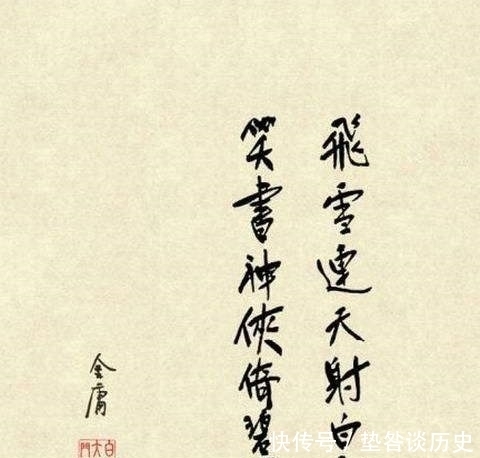 飛雪連天射白
笑書神俠倚碧
金庸
快传号/垫答谈历史